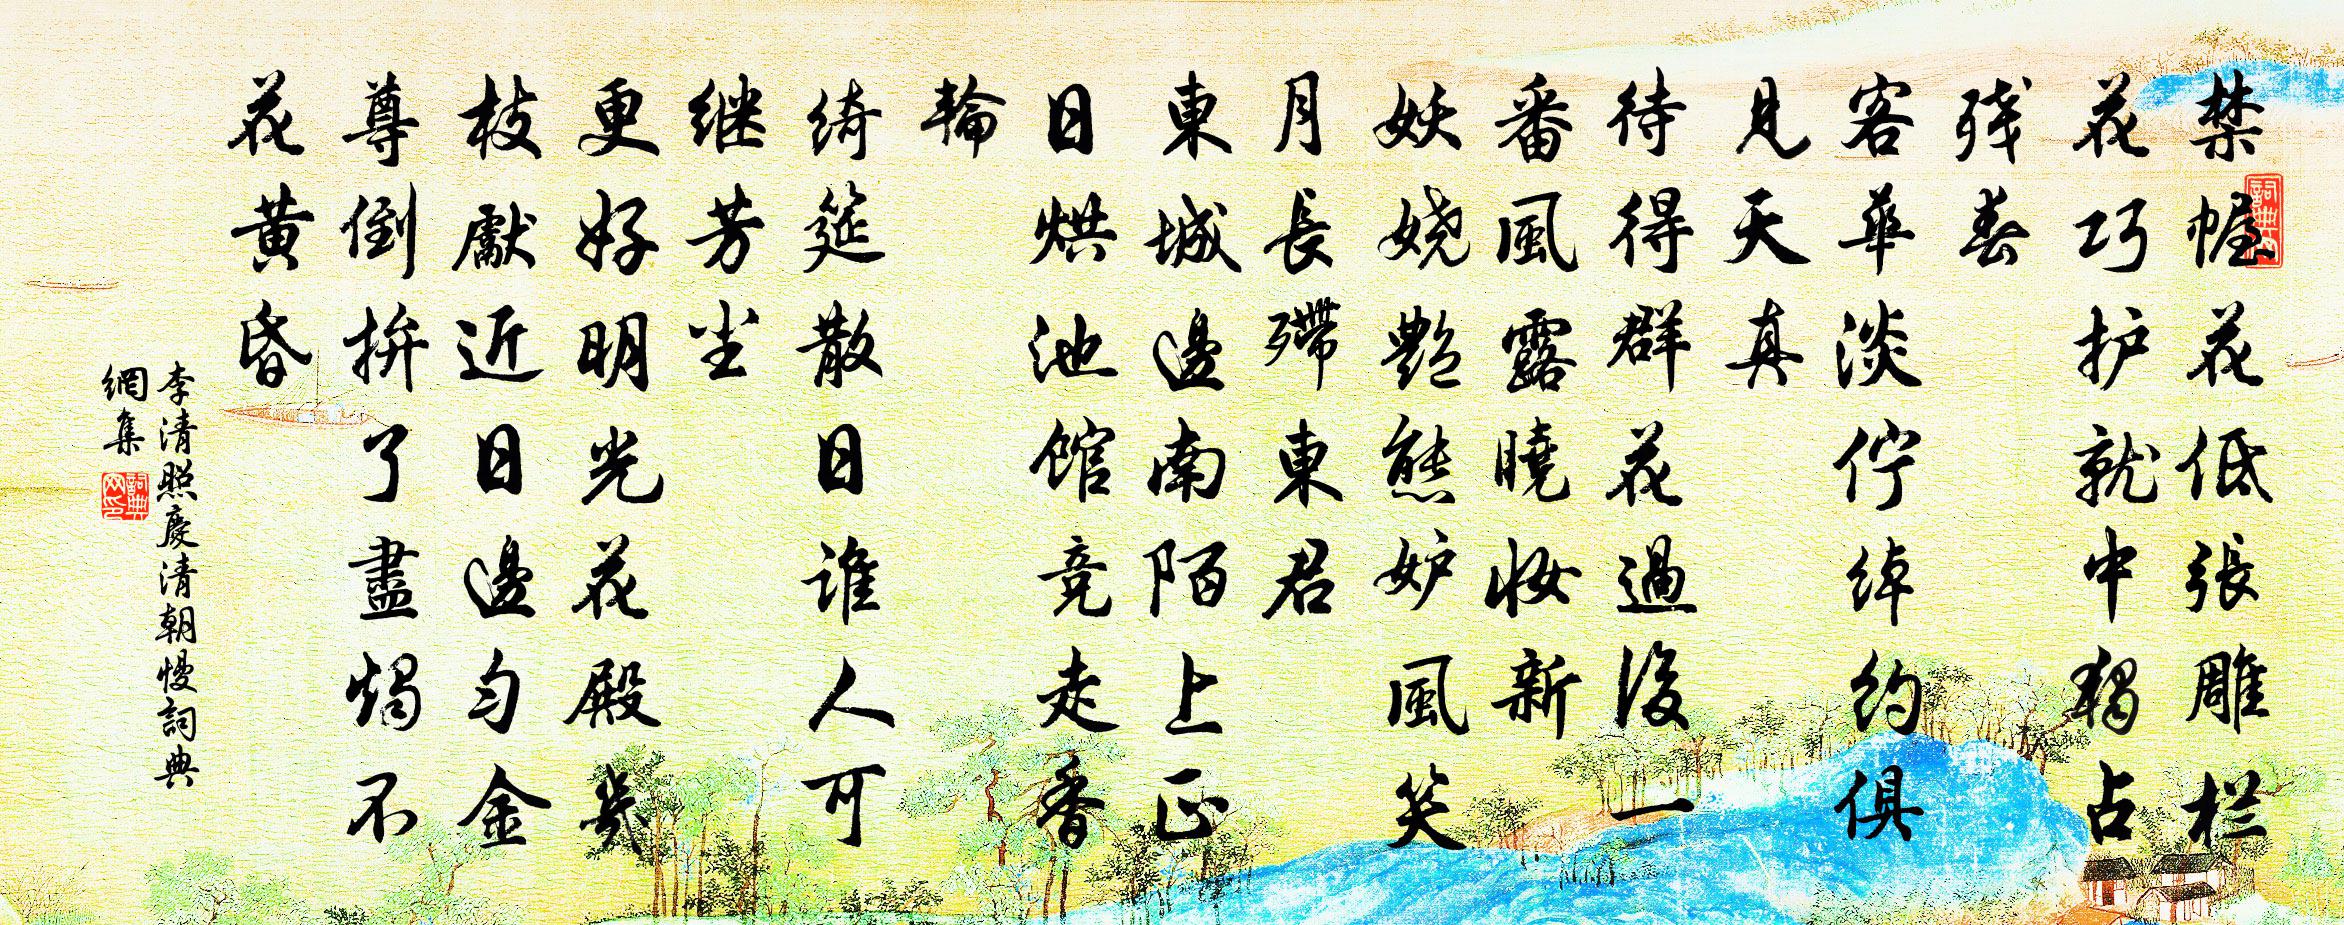 禁幄花低張雕栏
花巧护就中獨占
残春
客華淡佇绰约俱
見天真
待得群花過後一
番風露曉妆新
妖娆艷態妒風笑
月長殢東君
東城邊南陌上正
日烘池馆竞走香
輪
绮筵散日谁人可
继芳尘
更好明光花殿幾
枝獻近日邊匀金
尊倒拚了盡燭不
花黄昏
李清照慶清朝慢詞典
網集
詞典网印